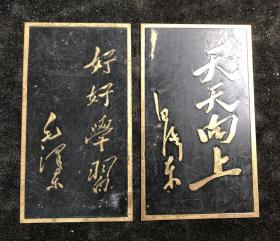 好好學習
毛泽东
天天向上
毛泽东